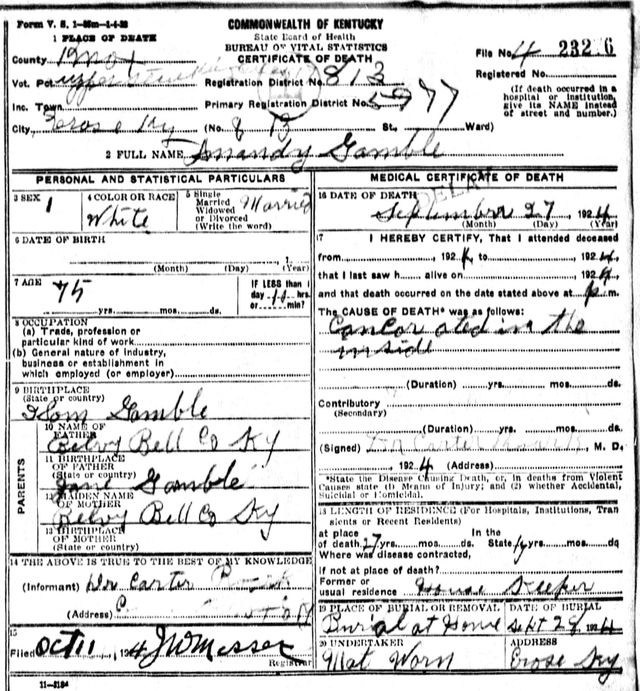 Form V. S. 1-
COMMONWEALTH OF KENTUCKY
State Board of Health
BUREAU OF VITAL STATISTICS
CERTIFICATE OF DEATH
1 PLACE OF DEATH
County Knox
Vot. Pct.
Inc. Town
City Crose Ky
Registration District No. 813
Primary Registration District No. 5977
(No. St., Ward)
File No. 4 232 6
Registered No.
(If death occurred in a
hospital or institution,
give its NAME instead
of street and number.)
2 FULL NAME Amandy Gamble
PERSONAL AND STATISTICAL PARTICULARS
3 SEX 1
4 COLOR OR RACE
White
5 Single
Married
Widowed
or Divorced
(Write the word)
Married
6 DATE OF BIRTH
(Month) (Day) (Year)
7 AGE 75
yrs. mos. ds.
IF LESS than 1
day hrs.
or min?
8 OCCUPATION
(a) Trade, profession or
particular kind of work
(b) General nature of industry,
business or establishment in
which employed (or employer)
9 BIRTHPLACE
(State or country)
Gamble
10 NAME OF
FATHER
Bell Co Ky
11 BIRTHPLACE
OF FATHER
(State or country)
Jane Gamble
12 MAIDEN NAME
OF MOTHER
Bell Co Ky
13 BIRTHPLACE
OF MOTHER
(State or country)
PARENTS
14 THE ABOVE IS TRUE TO THE BEST OF MY KNOWLEDGE
(Informant) Dr Carter
(Address)
15
Filed Oct 11, 1924 J W Messer
Registrar
11-3184
MEDICAL CERTIFICATE OF DEATH
16 DATE OF DEATH
September 27 1924
(Month) (Day) (Year)
17 I HEREBY CERTIFY, That I attended deceased
from , 1924, to , 1924,
that I last saw h alive on , 1924
and that death occurred on the date stated above at p m.
The CAUSE OF DEATH* was as follows:
Cancor in the
in side
(Duration) yrs. mos. ds.
Contributory
(Secondary)
(Duration) yrs. mos. ds.
(Signed) Dr Carter , M. D.
, 1924 (Address)
*State the Disease Causing Death, or, in deaths from Violent
Causes state (1) Means of Injury; and (2) whether Accidental,
Suicidal or Homicidal.
18 LENGTH OF RESIDENCE (For Hospitals, Institutions, Tran
sients or Recent Residents)
at place
of death 27 yrs. mos. ds.
In the
State yrs. mos. ds
Where was disease contracted,
if not at place of death?
Former or
usual residence House Keeper
19 PLACE OF BURIAL OR REMOVAL
Burial at Home
DATE OF BURIAL
Sept 28 1924
20 UNDERTAKER
Mat Worn
ADDRESS
Crose Ky